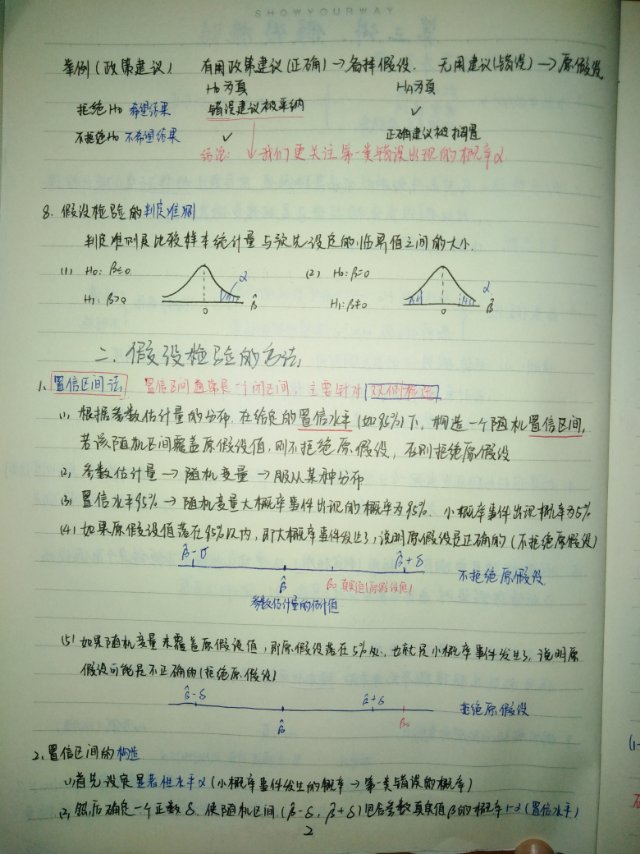 SHOWYOURWAY
举例(政策建议) 有用政策建议(正确)→备择假设. 无用建议(错误)→原假设
H₀为真 HA为真
拒绝H₀ 希望结果 错误建议被采纳 ✓
不拒绝H₀ 不希望结果 ✓ 正确建议被搁置
结论: ↓我们更关注第一类错误出现的概率α
8. 假设检验的判定准则
判定准则是比较样本统计量与预先设定的临界值之间的大小.
(1) H₀: β≤0 α (2) H₀: β=0 α
H₁: β>0 0 β̂ H₁: β≠0 0 β̂
二、假设检验的方法
1. 置信区间法: 置信区间通常是一个闭区间, 主要针对双侧检验
(1) 根据参数估计量的分布, 在给定的置信水平(如95%)下, 构造一个随机置信区间,
若该随机区间覆盖原假设值, 则不拒绝原假设, 否则拒绝原假设
(2) 参数估计量→随机变量→服从某种分布
(3) 置信水平95%→随机变量大概率事件出现的概率为95%. 小概率事件出现概率为5%
(4) 如果原假设值落在95%以内, 即大概率事件发生了, 说明原假设是正确的(不拒绝原假设)
β̂-δ β̂+δ 不拒绝原假设
β̂ β₀真实值(原假设值)
参数估计量的估计值
(5) 如果随机变量未覆盖原假设值, 即原假设落在5%处, 也就是小概率事件发生了, 说明原
假设可能是不正确的(拒绝原假设)
β̂-δ β̂+δ 拒绝原假设
β̂ β₀
2. 置信区间的构造
(1) 首先设定显著性水平α(小概率事件发生的概率→第一类错误的概率)
(2) 然后确定一个正数δ, 使随机区间(β̂-δ, β̂+δ)包含参数真实值β的概率1-α(置信水平)
2